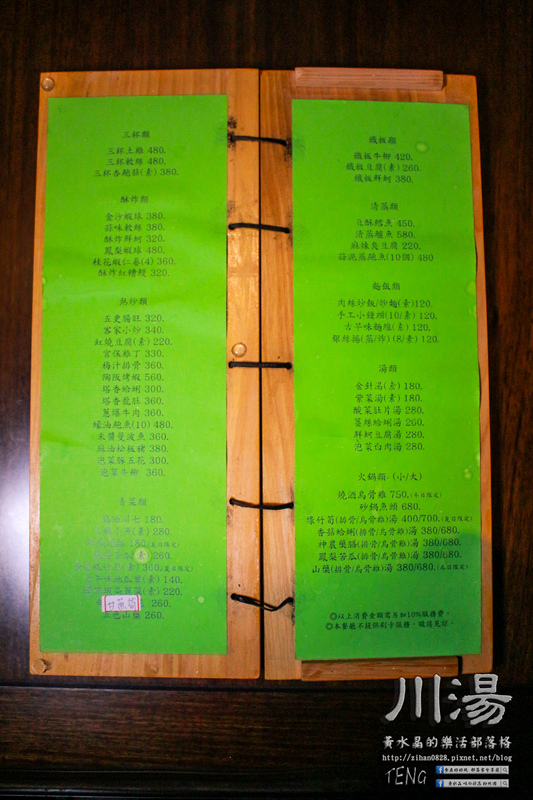 三杯類
三杯土雞 480.
三杯軟絲 480.
三杯杏鮑菇(素) 380.
酥炸類
金沙蝦球 380.
蒜味軟絲 380.
酥炸鮮蚵 320.
鳳梨蝦球 480.
桂花蝦仁卷(4) 360.
酥炸紅糟鰻 320.
熱炒類
五更腸旺 320.
客家小炒 340.
紅燒豆腐(素) 220.
宮保雞丁 330.
梅汁排骨 360.
陶阪烤蝦 560.
塔香蛤蜊 300.
塔香龍肚 360.
蔥爆牛肉 360.
蠔油鮑魚(10) 480.
米醬曼波魚 360.
麻油松板豬 380.
泡菜豚五花 300.
泡菜牛柳 360.
青菜類
180.
280.
180.
素 260.
360.
140.
220.
甘蔗筍 260.
五色山藥 260.
鐵板類
鐵板牛柳 420.
鐵板豆腐(素) 260.
鐵板鮮蚵 380.
清蒸類
豆酥鱈魚 450.
清蒸鱸魚 580.
麻辣臭豆腐 220.
蒜泥蒸鮑魚(10個) 480
麵飯類
肉絲炒飯/炒麵(素)120.
手工小饅頭(10/素) 120.
古早味麵線(素) 120.
銀絲捲(蒸/炸) (8/素) 120.
湯類
金針湯(素) 180.
紫菜湯(素) 180.
酸菜肚片湯 280.
薑絲蛤蜊湯 260.
鮮蚵豆腐湯 280.
泡菜白肉湯 280.
火鍋類 (小/大)
燒酒烏骨雞 750.(冬日限定)
砂鍋魚頭 680.
綠竹筍(排骨/烏骨雞)湯 400/700.(夏日限定)
香菇蛤蜊(排骨/烏骨雞)湯 380/680.
神農藥膳(排骨/烏骨雞)湯 380/680.
鳳梨苦瓜(排骨/烏骨雞)湯 380/680.
山藥(排骨/烏骨雞)湯 380/680.(冬日限定)
◎以上消費金額需另加10%服務費。
◎本餐廳不提供刷卡服務，敬請見諒。
川湯
黃水晶的樂活部落格
http://zihan0828.pixnet.net/blog
TENG